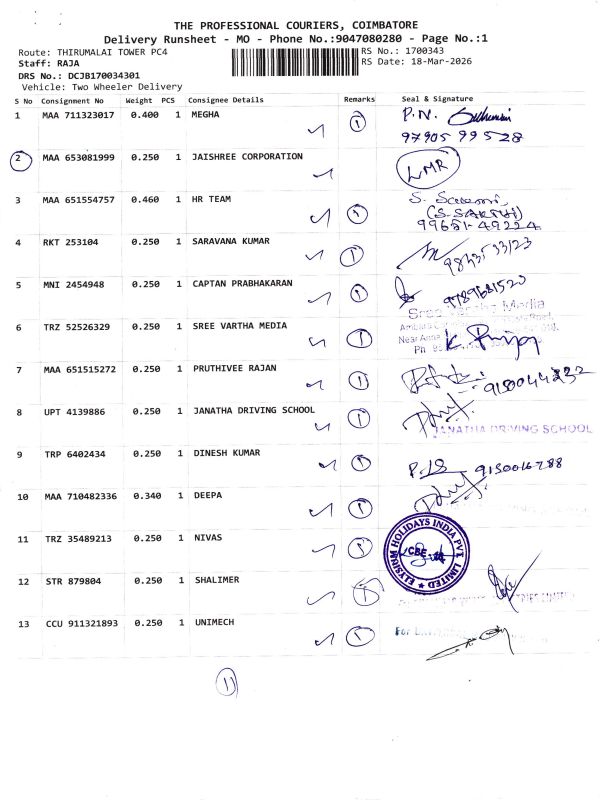 THE PROFESSIONAL COURIERS, COIMBATORE
Delivery Runsheet - MO - Phone No.:9047080280 - Page No.:1
Route: THIRUMALAI TOWER PC4 RS No.: 1700343
Staff: RAJA RS Date: 18-Mar-2026
DRS No.: DCJB170034301
Vehicle: Two Wheeler Delivery
S No Consignment No Weight PCS Consignee Details Remarks Seal & Signature
1 MAA 711323017 0.400 1 MEGHA 1 P.N.
97905 99528
2 MAA 653081999 0.250 1 JAISHREE CORPORATION LMR
3 MAA 651554757 0.460 1 HR TEAM 1 S.
(S. SAKTHI)
99651-49224
4 RKT 253104 0.250 1 SARAVANA KUMAR 1
5 MNI 2454948 0.250 1 CAPTAN PRABHAKARAN 1 9789681520
6 TRZ 52526329 0.250 1 SREE VARTHA MEDIA 1 Media
Ph
7 MAA 651515272 0.250 1 PRUTHIVEE RAJAN 1 9150044232
8 UPT 4139886 0.250 1 JANATHA DRIVING SCHOOL 1
JANATHA DRIVING SCHOOL
9 TRP 6402434 0.250 1 DINESH KUMAR 1 9150016288
10 MAA 710482336 0.340 1 DEEPA 1
11 TRZ 35489213 0.250 1 NIVAS 1 ELYSIUM HOLIDAYS INDIA PVT. LIMITED
CBE
12 STR 879804 0.250 1 SHALIMER 1
13 CCU 911321893 0.250 1 UNIMECH 1 For
11